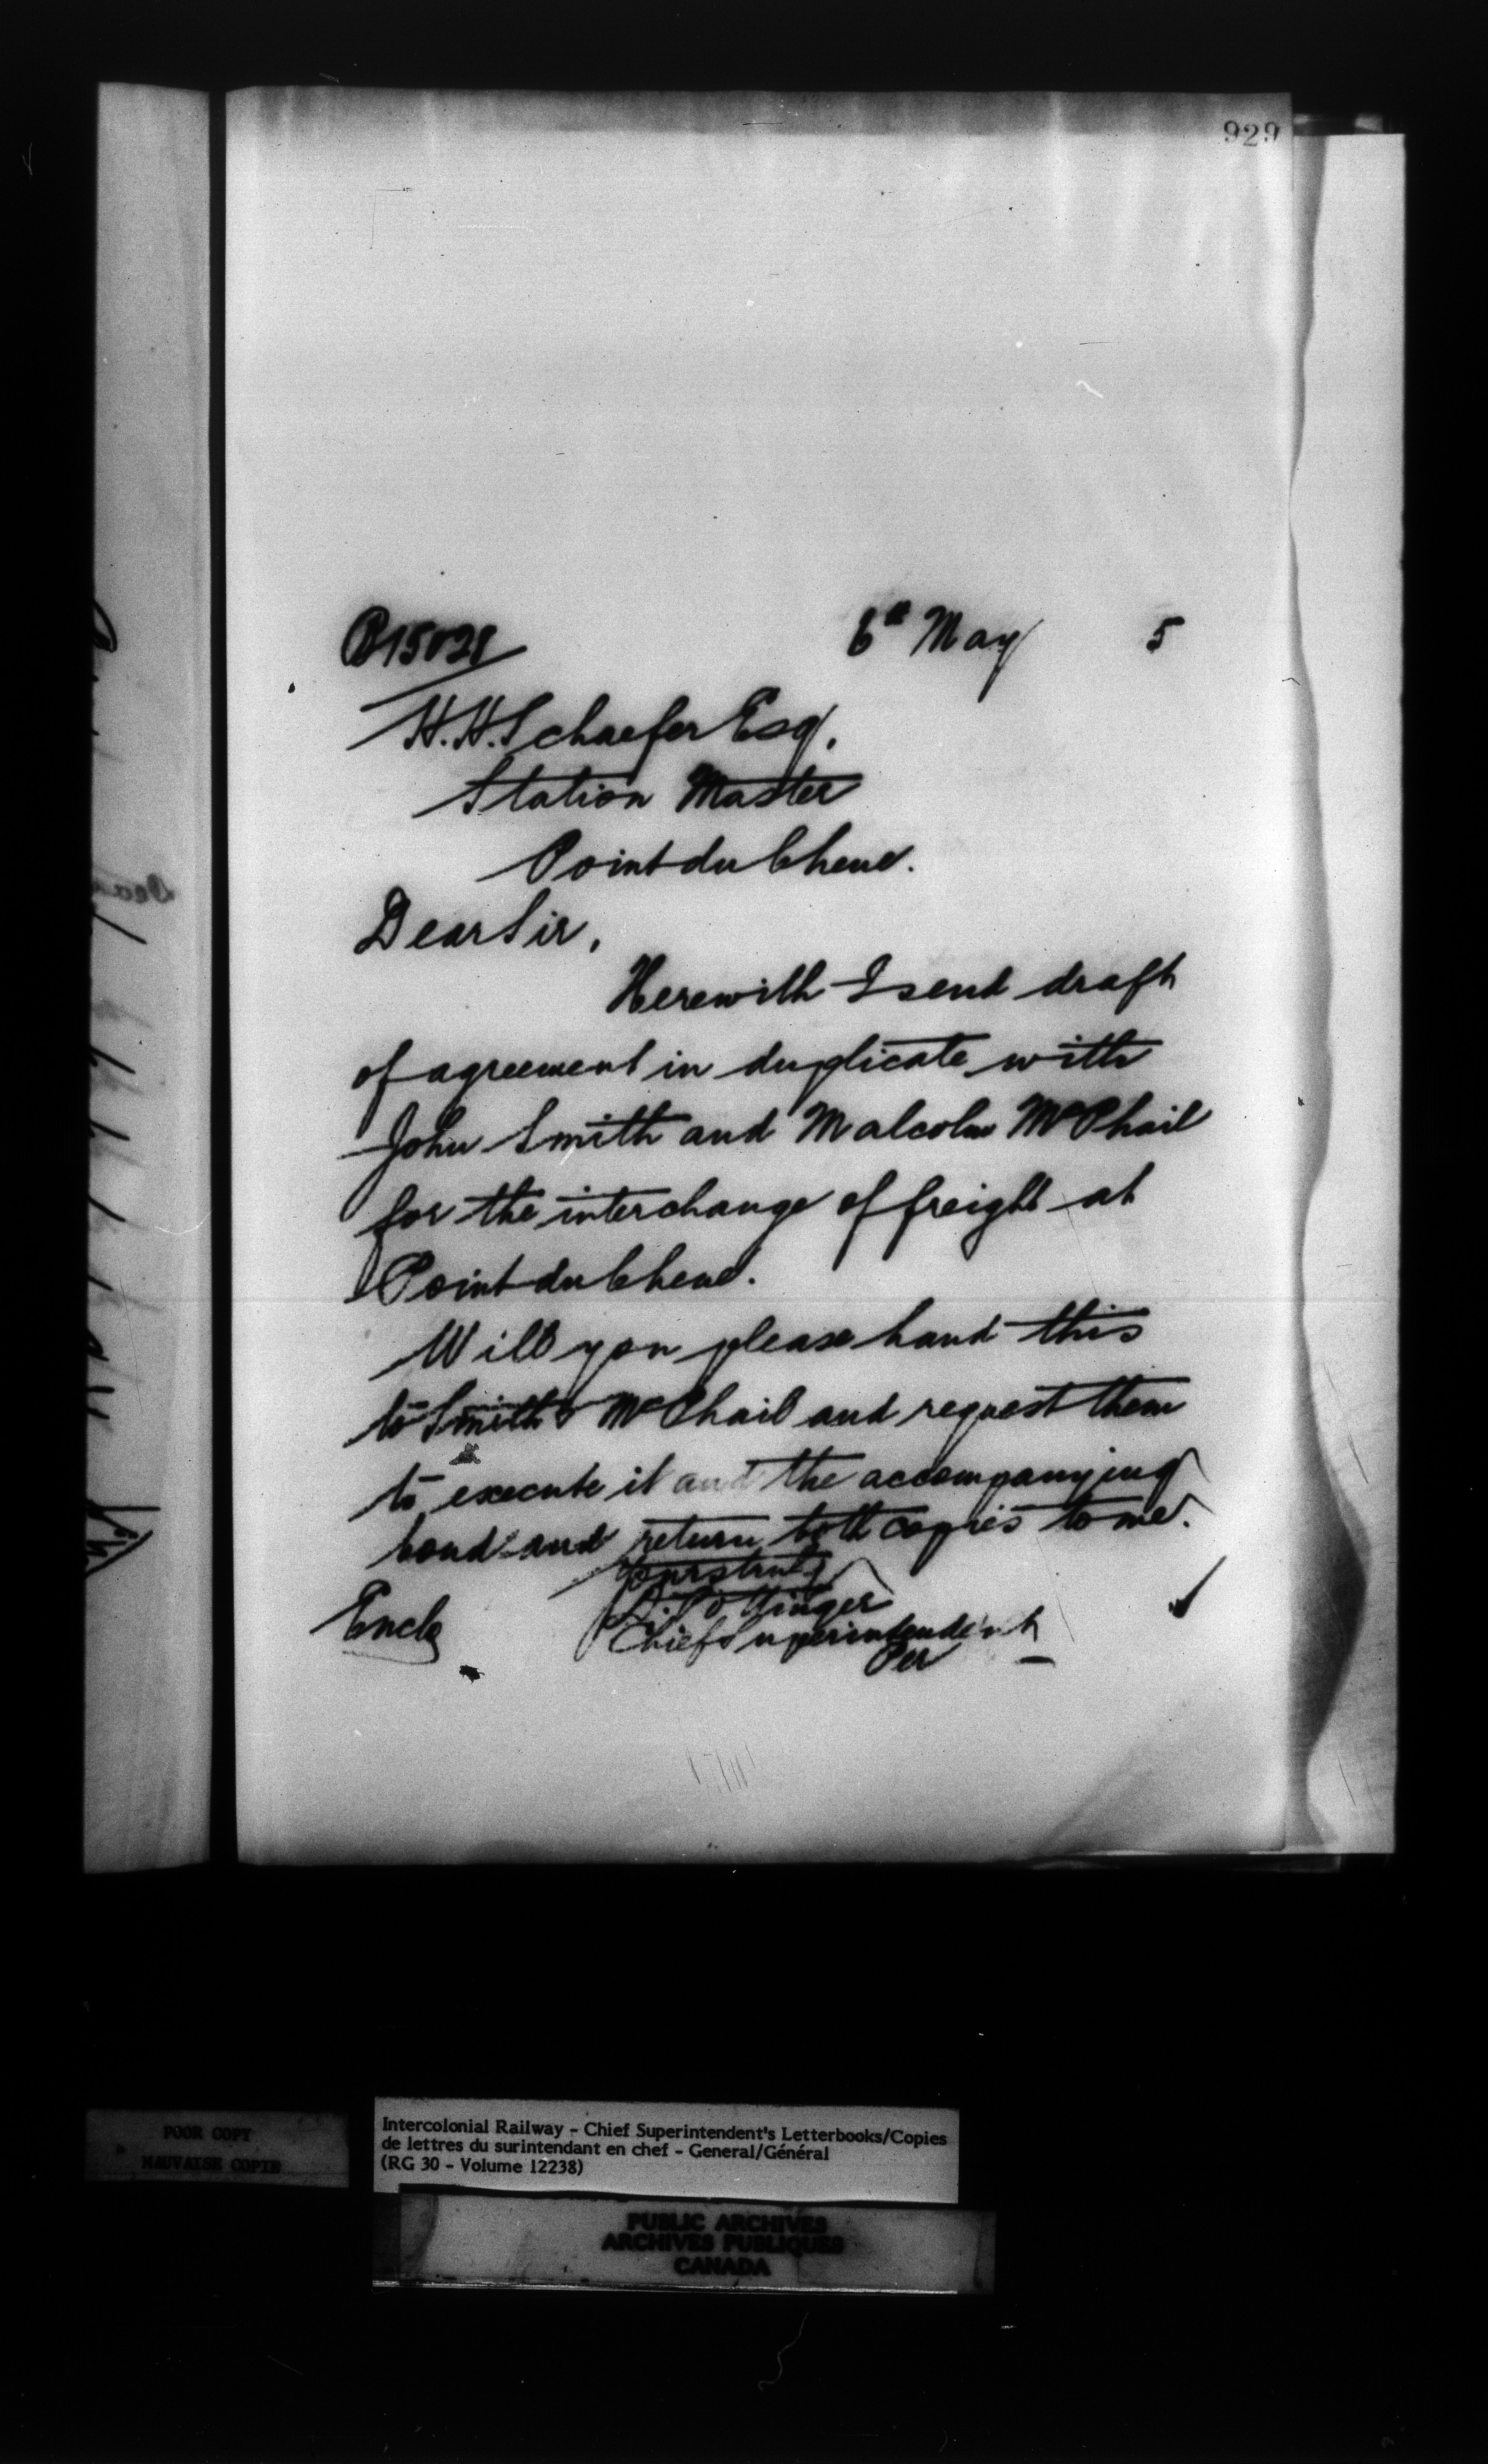 929
P15028
6th May 5
H.H. Schaefer Esq.
Station Master
Point du Chene.
Dear Sir,
Herewith I send draft
of agreement in duplicate with
John Smith and Malcolm McPhail
for the interchange of freight at
Point du Chene.
Will you please hand this
to Smith & McPhail and request them
to execute it and the accompanying
bond and return both copies to me.
Yours truly
D. Pottinger
Chief Superintendent
Per
Encls
POOR COPY
MAUVAISE COPIE
Intercolonial Railway - Chief Superintendent's Letterbooks/Copies
de lettres du surintendant en chef - General/Général
(RG 30 - Volume 12238)
PUBLIC ARCHIVES
ARCHIVES PUBLIQUES
CANADA